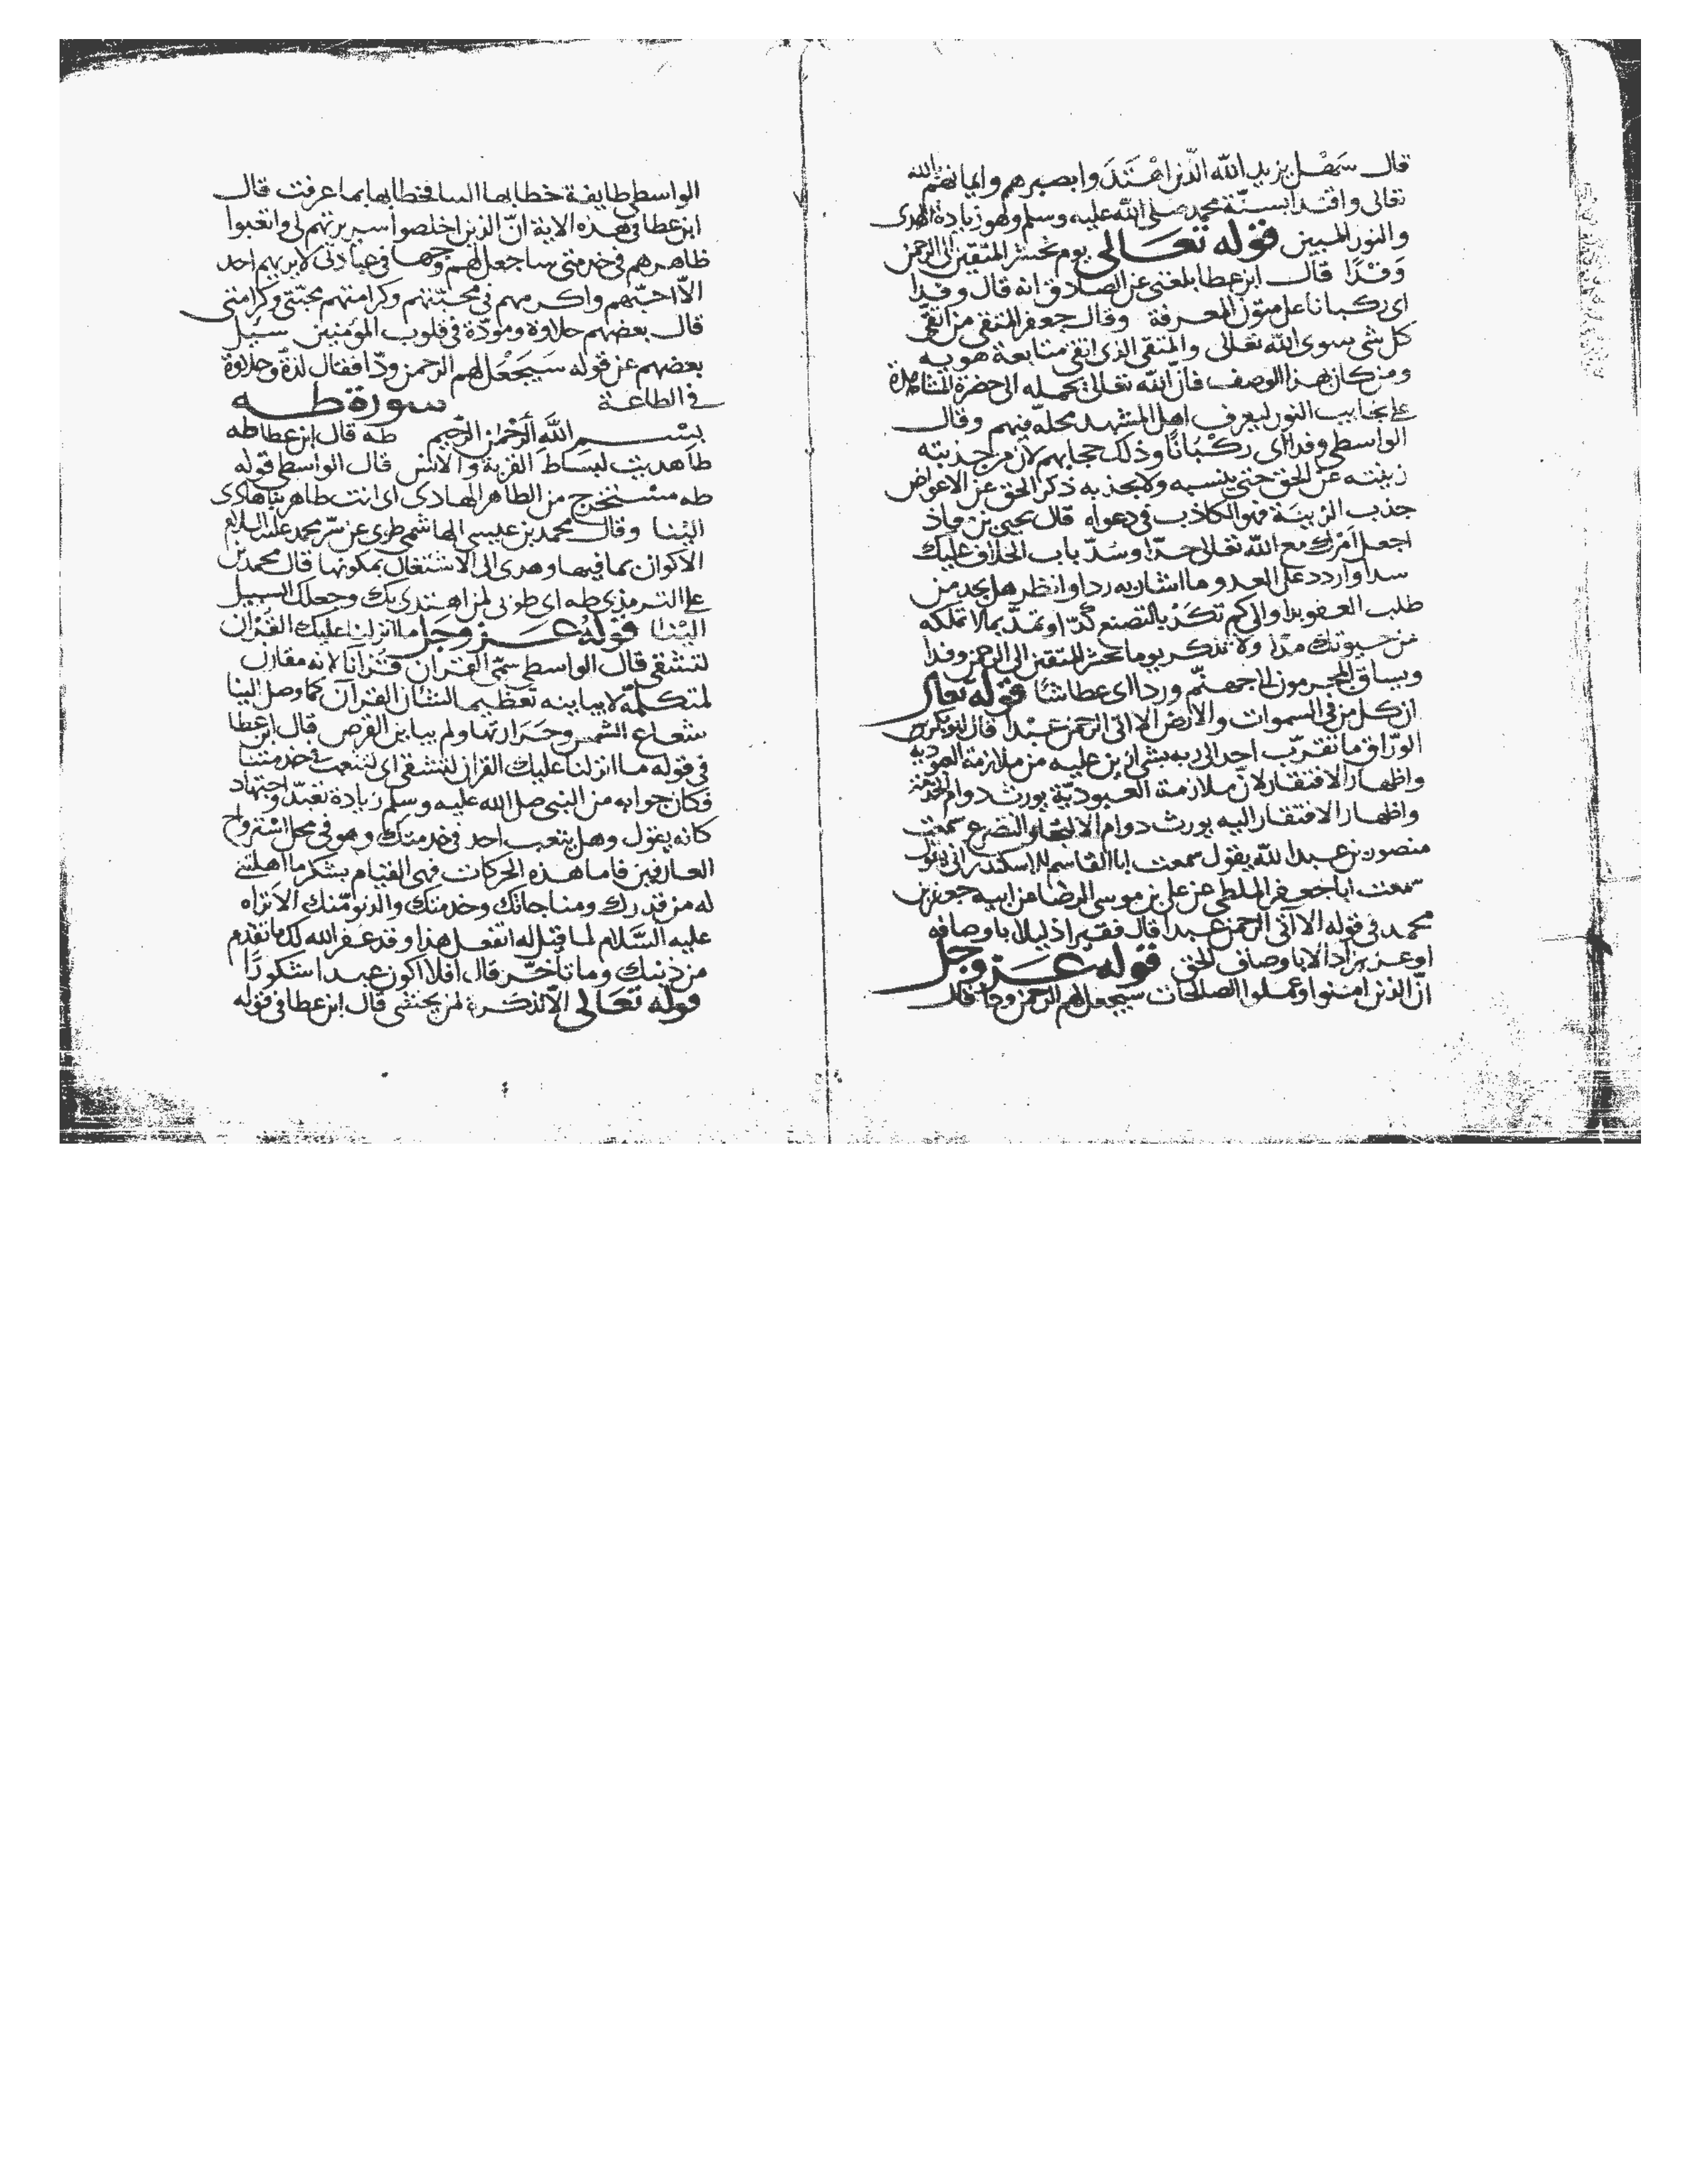 قال سهل يزيد الله الذين اهتدوا بصبرهم وايمانهم بالله
تعالى واقتدا بسنة محمد صلى الله عليه وسلم وهو زيادة الهدى
والنور المبين قوله تعالى يوم نحشر المتقين الى الرحمن
وفدا قال ابن عطا بلغنى عن الصادق انه قال وفدا
اى ركبانا على متون المعرفة وقال جعفر المتقى من اتقى
كل شى سوى الله تعالى والمتقى الذى اتقى متابعة هويه
ومن كان بهذا الوصف فان الله تعالى يحمله الى حضرة المشاهدة
على نجايب النور ليعرف اهل المشهد محله فيهم وقال
الواسطى وفدا اى ركبانا وذلك حجابهم لان من جذبته
زينته عن الحق حتى ينسيه ولا يجذبه ذكر الحق عن الاعواض
جذب الزينة فهو الكاذب فى دعواه قال يحيى بن معاذ
اجعل امرك مع الله تعالى جدا وسد باب الخلاف عليك
سدا واردد على العدو ما اشار به ردا وانظر هل تجد من
طلب العفو بدا والى كم تكد بالتصنع كدا وتمد بما لا تملكه
من حيوتك مدا ولا تذكر يوما نحشر المتقين الى الرحمن وفدا
ويساق المجرمون الى جهنم وردا اى عطاشا قوله تعالى
ان كل من فى السموات والارض الا اتى الرحمن عبدا قال ابو بكر
الوراق ما تقرب احد الى ربه بشى ازين عليه من ملازمة العبودية
واظهار الافتقار لان ملازمة العبودية يورث دوام الخدمة
واظهار الافتقار اليه يورث دوام الالتجا والتضرع سمعت
منصور بن عبد الله يقول سمعت ابا القاسم الاسكندرانى يقول
سمعت ابا جعفر الملطى عن على بن موسى الرضا عن ابيه جعفر بن
محمد فى قوله الا اتى الرحمن عبدا قال فقيرا ذليلا باوصافه
او عزيزا دالا باوصاف الحق قوله عز وجل
ان الذين امنوا وعملوا الصلحات سيجعل لهم الرحمن ودا قال
الواسطى طايفة خطابها فخطابها بما عرفت قال
ابن عطا فى هذه الاية ان الذين اخلصوا سريرتهم لى واتعبوا
ظاهرهم فى خدمتى ساجعل لهم وجها فى عبادتى لا يريهم احد
الا احبهم واكرمهم فى محبتهم وكرامتهم محبتى وكرامتى
قال بعضهم حلاوة ومودة فى قلوب المؤمنين سيل
بعضهم عن قوله سيجعل لهم الرحمن ودا فقال لذة وحلاوة
فى الطاعة سورة طه
بسم الله الرحمن الرحيم طه قال ابن عطا طه
طا هديت لبساط القربة والانس قال الواسطى قوله
طه مستخرج من الطاهر الهادى اى انت طاهر بنا هادى
الينا وقال محمد بن عيسى الهاشمى طوى عن سر محمد عليه السلام
الاكوان بما فيها وهدى الى الاشتغال بمكونها قال محمد بن
على الترمذى طه اى طوبى لمن اهتدى بك وجعلك السبيل
الينا قوله عز وجل ما انزلنا عليك القران
لتشقى قال الواسطى سمى القران قرآنا لانه مقارن
لمتكلمه لا يباينه تعظيما لشان القرآن كما وصل الينا
شعاع الشمس وحرارتها ولم يباين القرص قال ابن عطا
فى قوله ما انزلنا عليك القران لتشقى اى لتتعب فى خدمتنا
فكان جوابه من النبى صلى الله عليه وسلم زيادة تعبد واجتهاد
كانه يقول وهل يتعب احد فى خدمتك وهو فى محل استرواح
العارفين فاما هذه الحركات فهى القيام بشكر ما اهلتنى
له من قدرك ومناجاتك وخدمتك والدنو منك الا تراه
عليه السلام لما قيل له اتفعل هذا وقد غفر الله لك ما تقدم
من ذنبك وما تاخر قال افلا اكون عبدا شكورا
قوله تعالى الا تذكرة لمن يخشى قال ابن عطا فى قوله